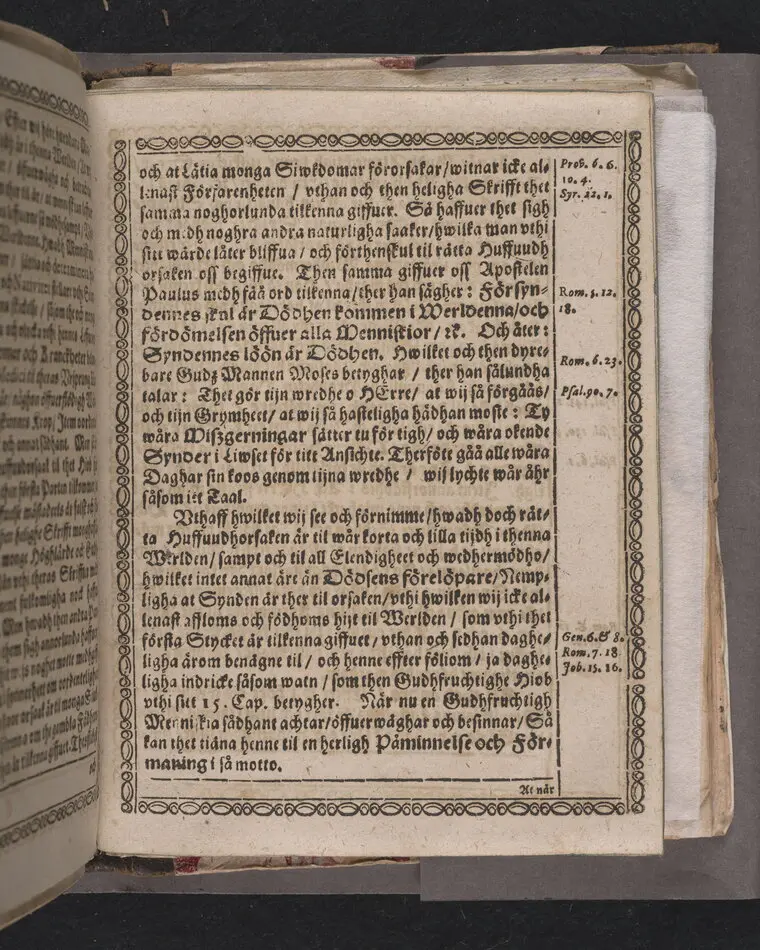 och at Lätia monga Siwkdomar förorsakar/witnar icke al-
lenast Förfarenheten / vthan och then heligha Skrifft thet
samma noghorlunda tilkenna giffuer. Så haffuer thet sigh
och medh noghra andra naturligha saaker/hwilka man vthi
sitt wärde låter bliffua / och förthenskul til rätta Huffuudh
orsaken oss begiffue. Then samma giffuer oss Apostelen
Paulus medh fåå ord tilkenna/ther han sägher: För syn-
dennes skul är Dödhen kommen i Werldenna/och
fördömelsen öffuer alla Menniskior/ ꝛc. Och åter:
Syndennes löön är Dödhen. Hwilket och then dyre-
bare Gudz Mannen Moses betyghar / ther han sålundha
talar: Thet gör tijn wredhe o HErre/ at wij så förgåås/
och tijn Grymheet/ at wij så hasteligha hädhan moste: Ty
wåra Miszgerningar sätter tu för tigh/ och wåra okende
Synder i Liwset för titt Ansichte. Therföre gåå alle wåra
Daghar sin koos genom tijna wredhe / wij lychte wår åhr
såsom iet Taal.
Vthaff hwilket wij see och förnimme/hwadh doch rät-
ta Huffuudhorsaken är til wår korta och lilla tijdh i thenna
Werlden/ sampt och til all Elendigheet och wedhermödho/
hwilket intet annat äre än Dödsens förelöpare/Nemp-
ligha at Synden är ther til orsaken/vthi hwilken wij icke al-
lenast affloms och födhoms hijt til Werlden / som vthi thet
första Stycket är tilkenna giffuet/ vthan och sedhan daghe-
ligha ärom benägne til / och henne effter föliom / ja daghe-
ligha indricke såsom watn / som then Gudhfruchtighe Hiob
vthi sitt 15. Cap. betygher. När nu en Gudhfruchtigh
Menniskia sådhant achtar/öffuerwäghar och besinnar/ Så
kan thet tiäna henne til en herligh Påminnelse och För-
maning i så motto.
At når
Prob. 6. 6.
10. 4.
Syr. 22. 1.
Rom. 5. 12.
18.
Rom. 6. 23.
Psal. 90. 7.
Gen. 6. & 8.
Rom. 7. 18
Job. 15. 16.